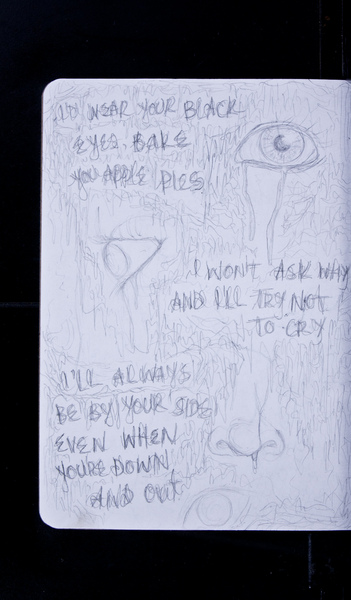 I'D WEAR YOUR BLACK
EYES, BAKE
YOU APPLE PIES
I WON'T ASK WHY
AND I'LL TRY NOT
TO CRY
I'LL ALWAYS
BE BY YOUR SIDE
EVEN WHEN
YOU'RE DOWN
AND OUT